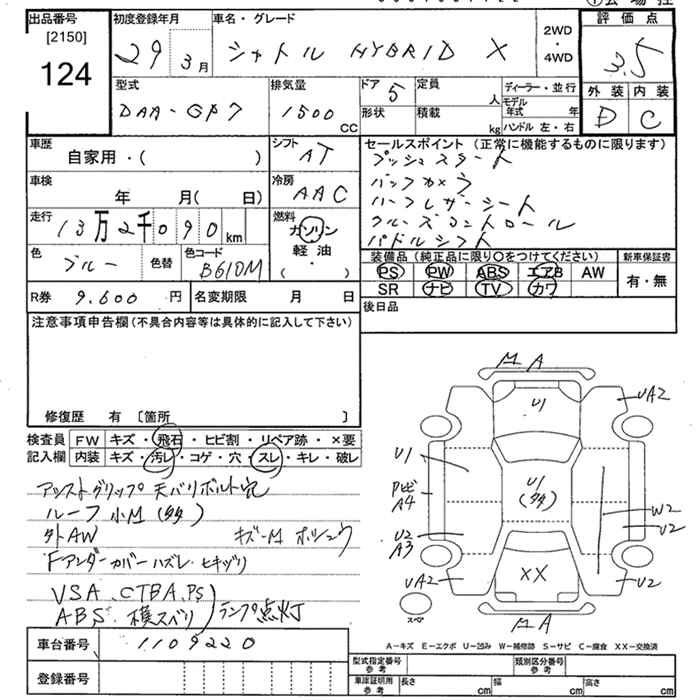 出品番号 [2150] 124
初度登録年月 29 3月
車名・グレード シャトル HYBRID X
2WD・4WD
評価点 3.5
型式 DAA-GP7
排気量 1500 CC
ドア 5
形状
定員 人
積載 kg
ディーラー・並行
モデル年式 年
ハンドル 左・右
外装 内装
D C
車歴 自家用・( )
シフト AT
車検 年 月( 日)
冷房 AAC
走行 13万2千090 km
燃料 ガソリン 軽油 ( ・ )
色 ブルー 色替
色コード B610M
R券 9.600 円
名変期限 月 日
セールスポイント (正常に機能するものに限ります)
プッシュスタート
バックカメラ
ハーフレザーシート
クルーズコントロール
パドルシフト
装備品 (純正品に限り○をつけてください)
PS PW ABS エアB AW
SR ナビ TV カワ
新車保証書 有・無
後日品
注意事項申告欄 (不具合内容等は具体的に記入して下さい)
修復歴 有 〔箇所 〕
検査員記入欄
FW キズ・飛石・ヒビ割・リペア跡・×要
内装 キズ・汚レ・コゲ・穴・スレ・キレ・破レ
アシストグリップ 天バリボルト穴
ルーフ 小M (多)
外AW キズ-M ホシュウ
Fアンダーカバー ハズレ・ヒキヅリ
VSA.CTBA.PS
ABS.横スベリ ランプ点灯
車台番号 1109220
登録番号
MA
U1
UA2
U1
U1 (多)
PLビ A4
U2 A3
W2
U2
UA2
XX
U2
スペア
MA
A-キズ E-エクボ U-凹み W-補修跡 S-サビ C-腐食 XX-交換済
型式指定番号 参考
類別区分番号 参考
車庫証明用 参考 長さ cm 幅 cm 高さ cm